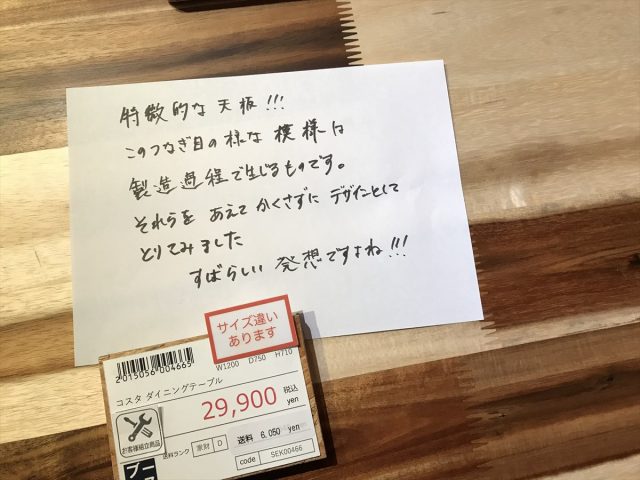 特徴的な天板!!!
このつなぎ目の様な模様は
製造過程で生じるものです。
それらを あえて かくさずに デザインとして
とりてみました
すばらしい 発想ですよね!!!
サイズ違い
あります
2015056 004665
W1200 D750 H710
コスタ ダイニングテーブル
29,900 税込 yen
お客様組立商品
送料ランク 家財 D 送料 6,050 yen
code SEK00466